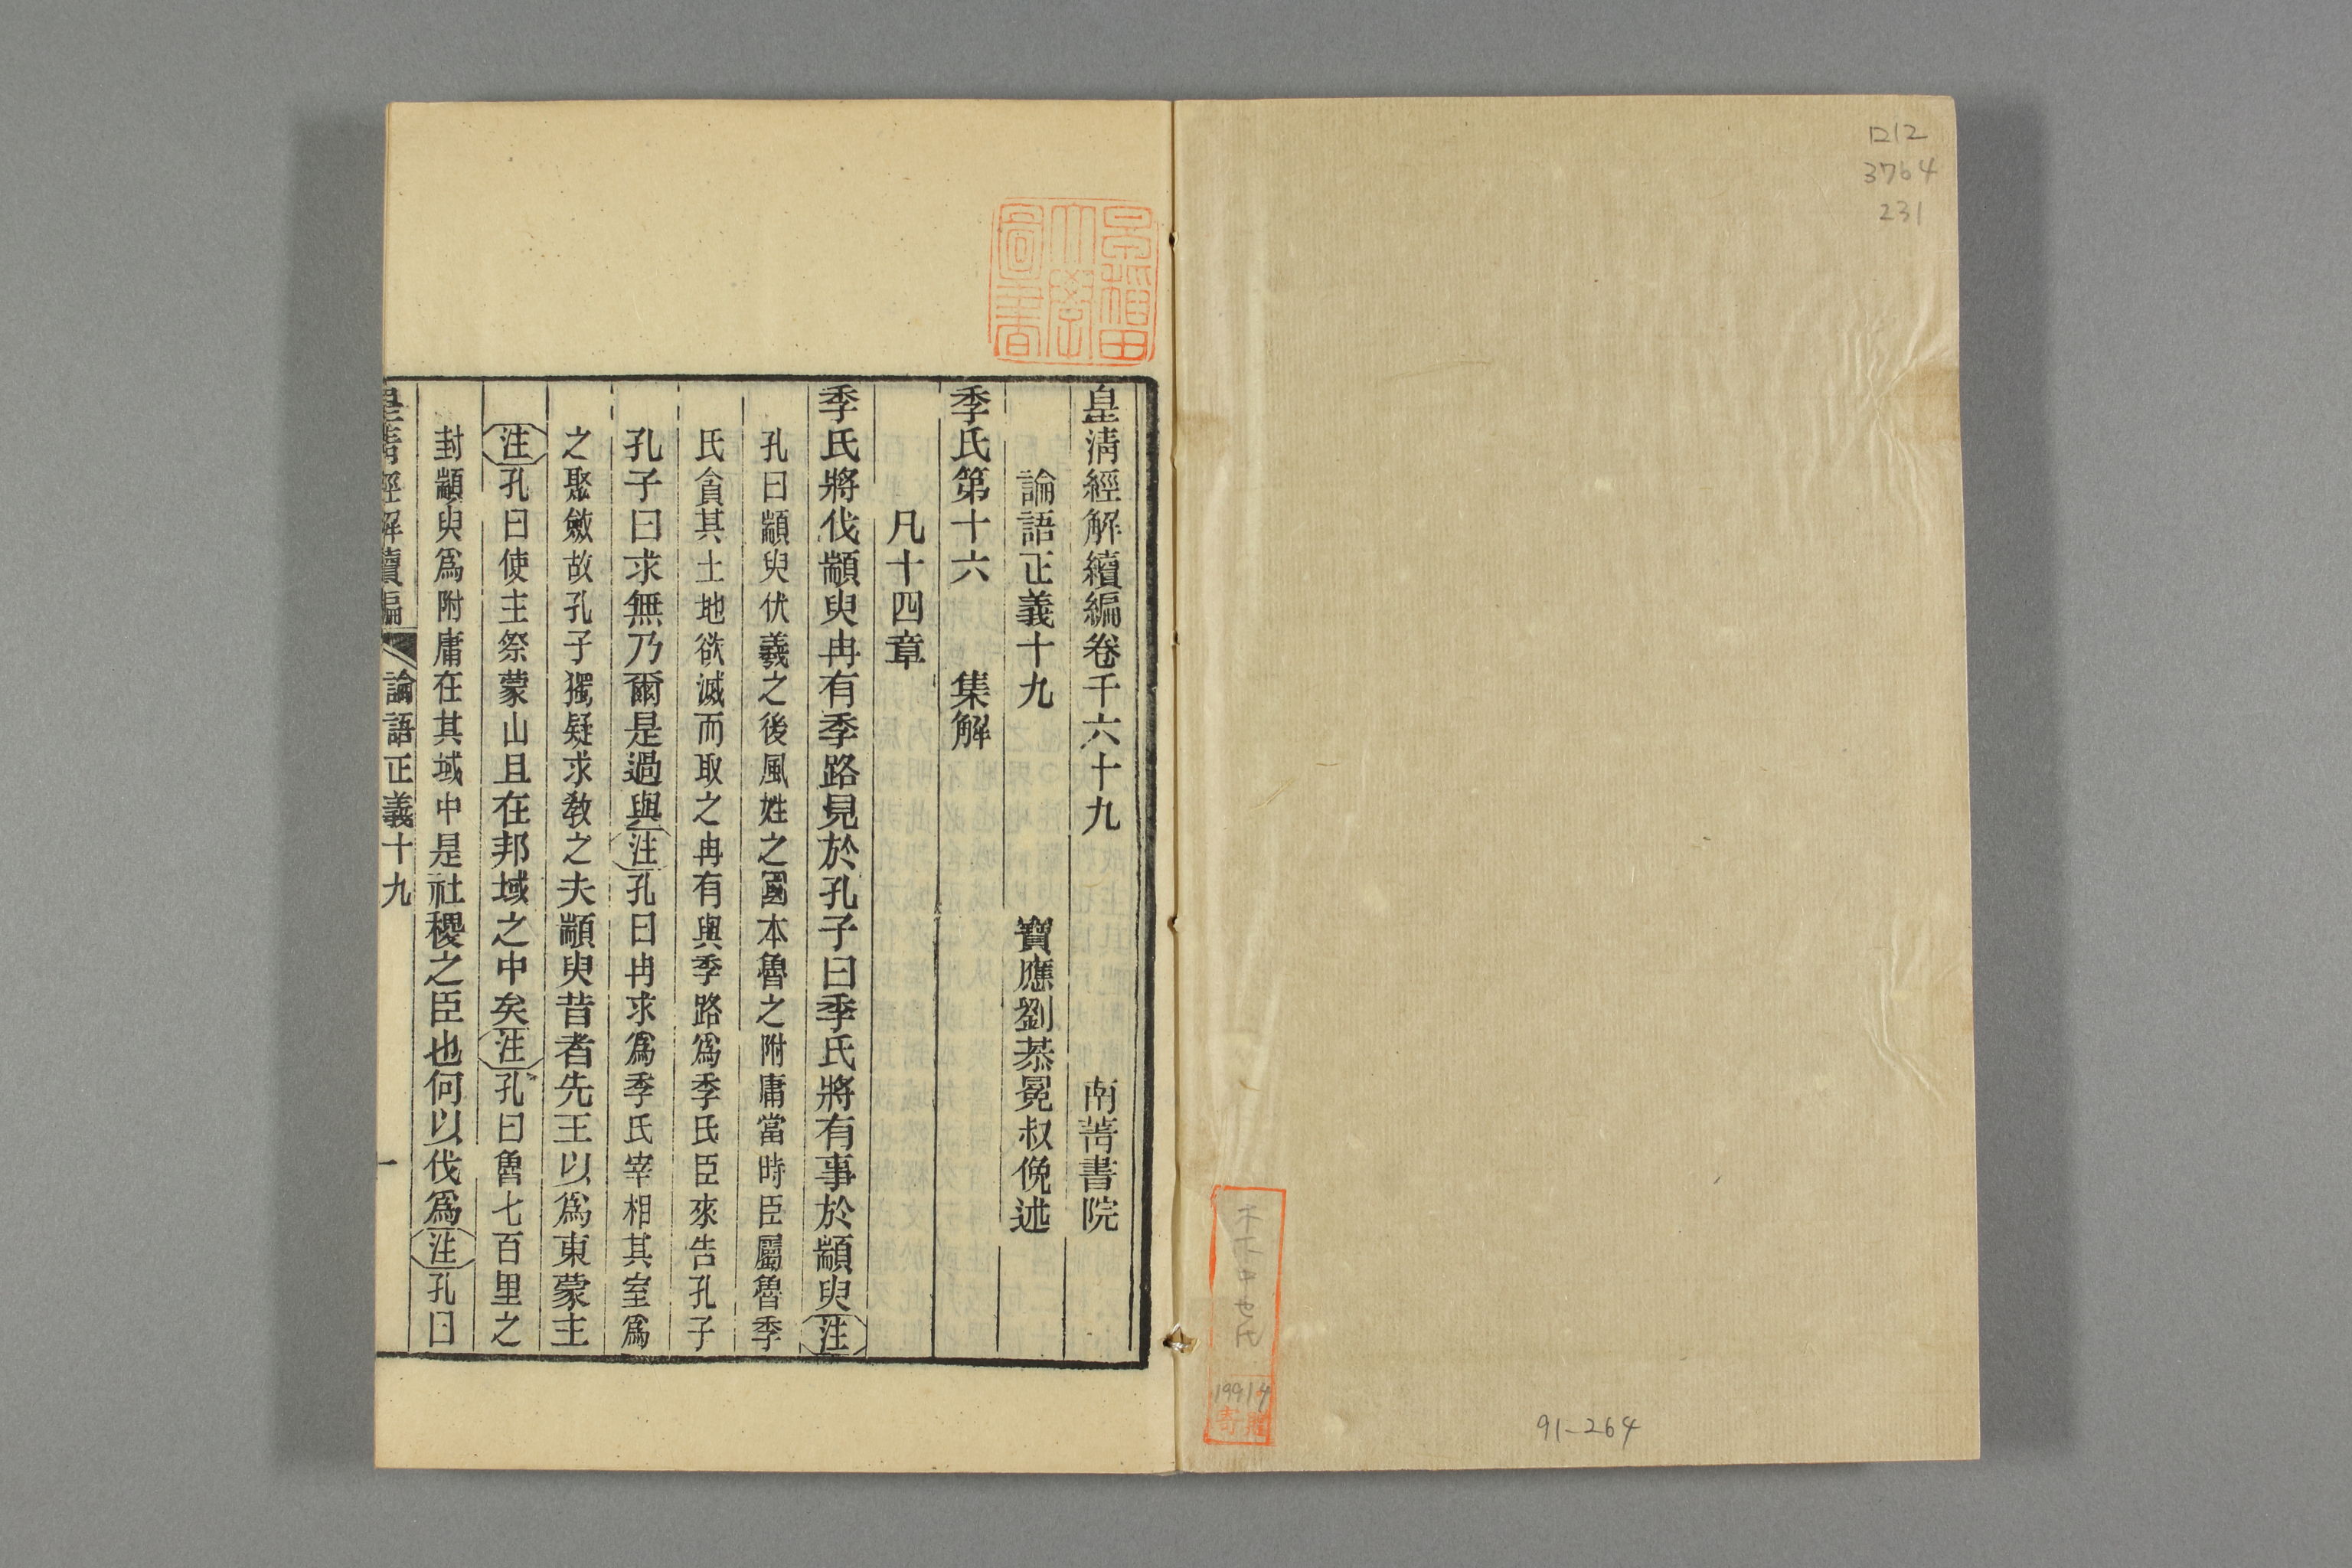 口12
3764
231
91-264
19914
寄贈
早稲田大學圖書
皇清經解續編卷千六十九 南菁書院
論語正義十九 寶應劉恭冕叔俛述
季氏第十六 集解
凡十四章
季氏將伐顓臾冉有季路見於孔子曰季氏將有事於顓臾注
孔曰顓臾伏羲之後風姓之國本魯之附庸當時臣屬魯季
氏貪其土地欲滅而取之冉有與季路爲季氏臣來告孔子
孔子曰求無乃爾是過與注孔曰冉求爲季氏宰相其室爲
之聚斂故孔子獨疑求敎之夫顓臾昔者先王以爲東蒙主
注孔曰使主祭蒙山且在邦域之中矣注孔曰魯七百里之
封顓臾爲附庸在其域中是社稷之臣也何以伐爲注孔曰
皇清經解續編 論語正義十九 一